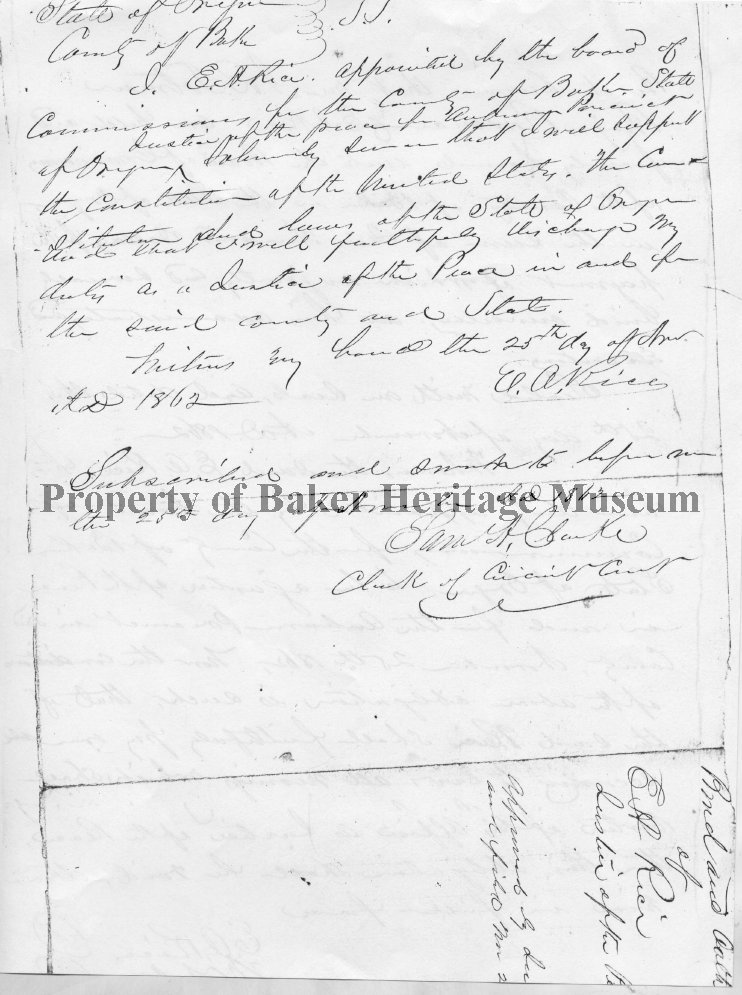 State of Oregon
County of Baker } S.S.
I. E. A. Rice. appointed by the board of
Commissioners for the County of Baker State
Justice of the peace for Auburn Precinct
of Oregon Solemnly Swear that I will support
the Constitution of the United States. The Con-
stitution and laws of the State of Oregon
And that I will faithfully discharge my
duties as a Justice of the Peace in and for
the said county and State.
Witness my hand the 25th day of Nov.
A D 1862
E. A. Rice
Subscribed and sworn to before me
Property of Baker Heritage Museum
the 25th day of November AD 1862
Sam A. Clarke
Clerk of Circuit Court
Bond and Oath
of
E A Rice
Justice of the
Approved by
and filed